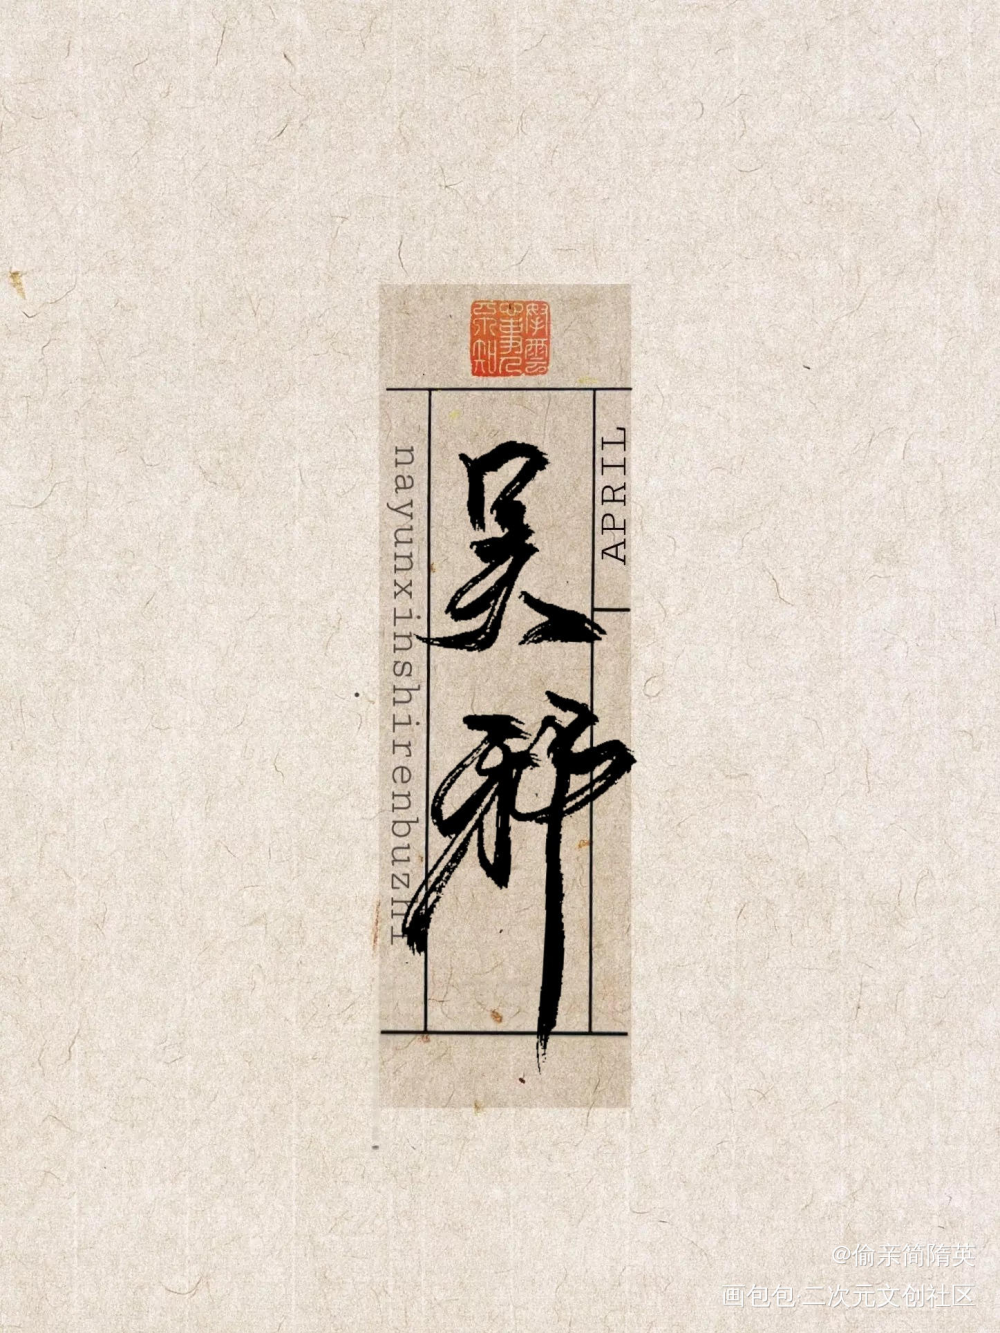 吴邪
APRIL
nayunxinshirenbuzhi
@偷亲简隋英
画包包·二次元文创社区